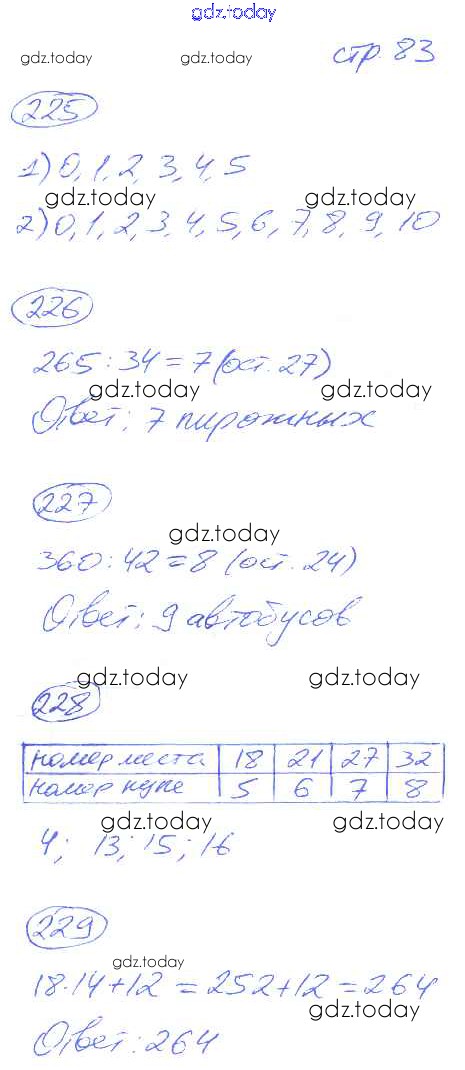 gdz.today
gdz.today gdz.today стр. 83
225
1) 0, 1, 2, 3, 4, 5
gdz.today gdz.today
2) 0, 1, 2, 3, 4, 5, 6, 7, 8, 9, 10
226
265 : 34 = 7 (ост. 27)
gdz.today gdz.today
Ответ: 7 пирожных
227
gdz.today
360 : 42 = 8 (ост. 24)
Ответ: 9 автобусов
gdz.today gdz.today
228
номер места 18 21 27 32
номер купе 5 6 7 8
gdz.today gdz.today
4; 13; 15; 16
229
gdz.today
18·14+12 = 252+12 = 264
gdz.today
Ответ: 264
gdz.today